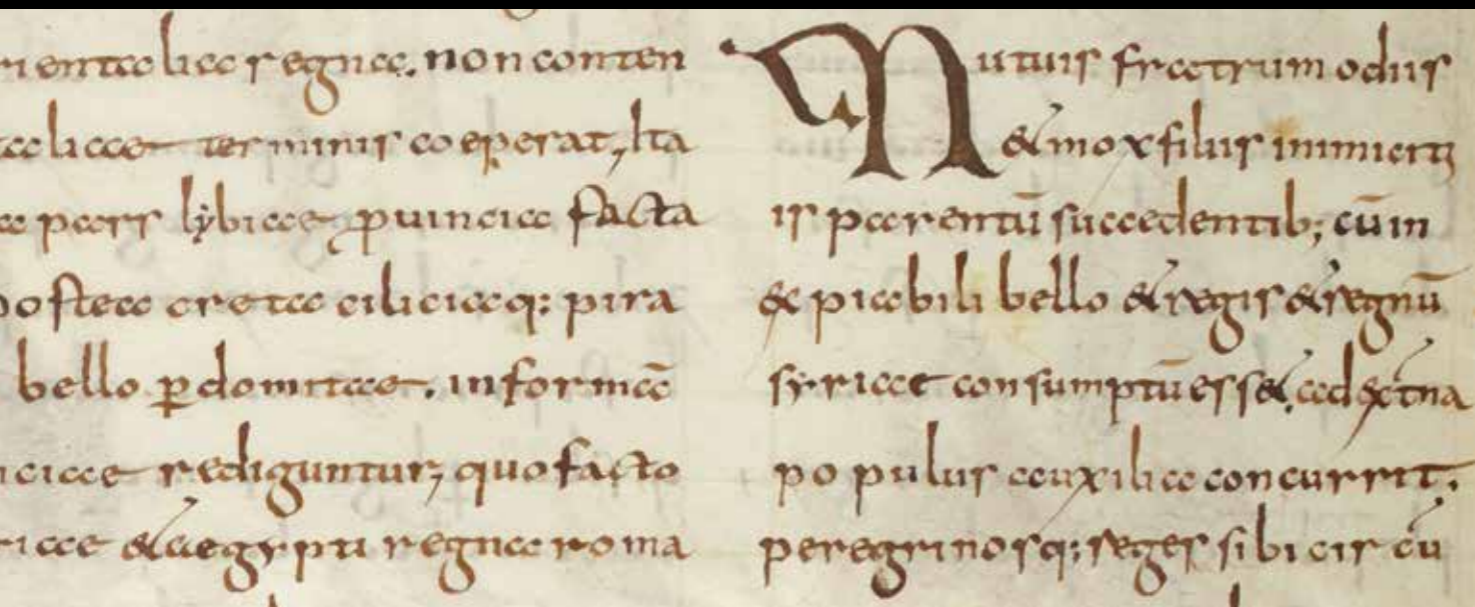 rientalia regna. non conten
aliae terminis coeperat, Ita
pars lybiae ꝓuincia facta
postea creta ciliciaq; pira
bello ꝑdomitae. in formā
ciae rediguntur, quo facto
riae & aegypti regna roma
Mutuis fratrum odiis
& mox filiis inimiciti
is parentū succedentib; cū in
ex piabili bello & regis & regnū
syriae consumptū ess&, ad ext̄na
populus auxilia concurrit.
peregrinosq; reges sibi cir cū